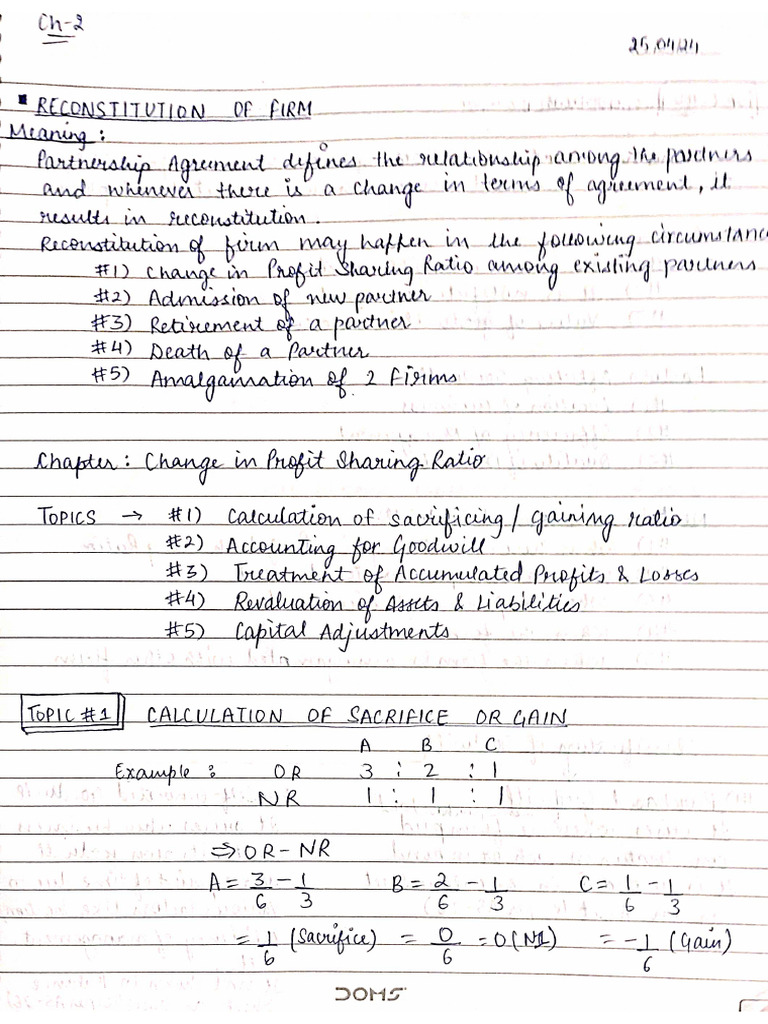 Ch-2
25.04.24
RECONSTITUTION OF FIRM
Meaning :
Partnership Agreement defines the relationship among the partners
and whenever there is a change in terms of agreement, it
results in reconstitution.
Reconstitution of firm may happen in the following circumstanc
#1) Change in Profit Sharing Ratio among existing partners
#2) Admission of new partner
#3) Retirement of a partner
#4) Death of a Partner
#5) Amalgamation of 2 Firms
Chapter : Change in Profit Sharing Ratio
TOPICS → #1) Calculation of sacrificing / gaining ratio
#2) Accounting for Goodwill
#3) Treatment of Accumulated Profits & Losses
#4) Revaluation of Assets & Liabilities
#5) Capital Adjustments
TOPIC #1 CALCULATION OF SACRIFICE OR GAIN
A B C
Example : OR 3 : 2 : 1
NR 1 : 1 : 1
⇒ OR - NR
A = 3/6 - 1/3 B = 2/6 - 1/3 C = 1/6 - 1/3
= 1/6 (Sacrifice) = 0/6 = 0 (Nil) = -1/6 (Gain)
DOMS